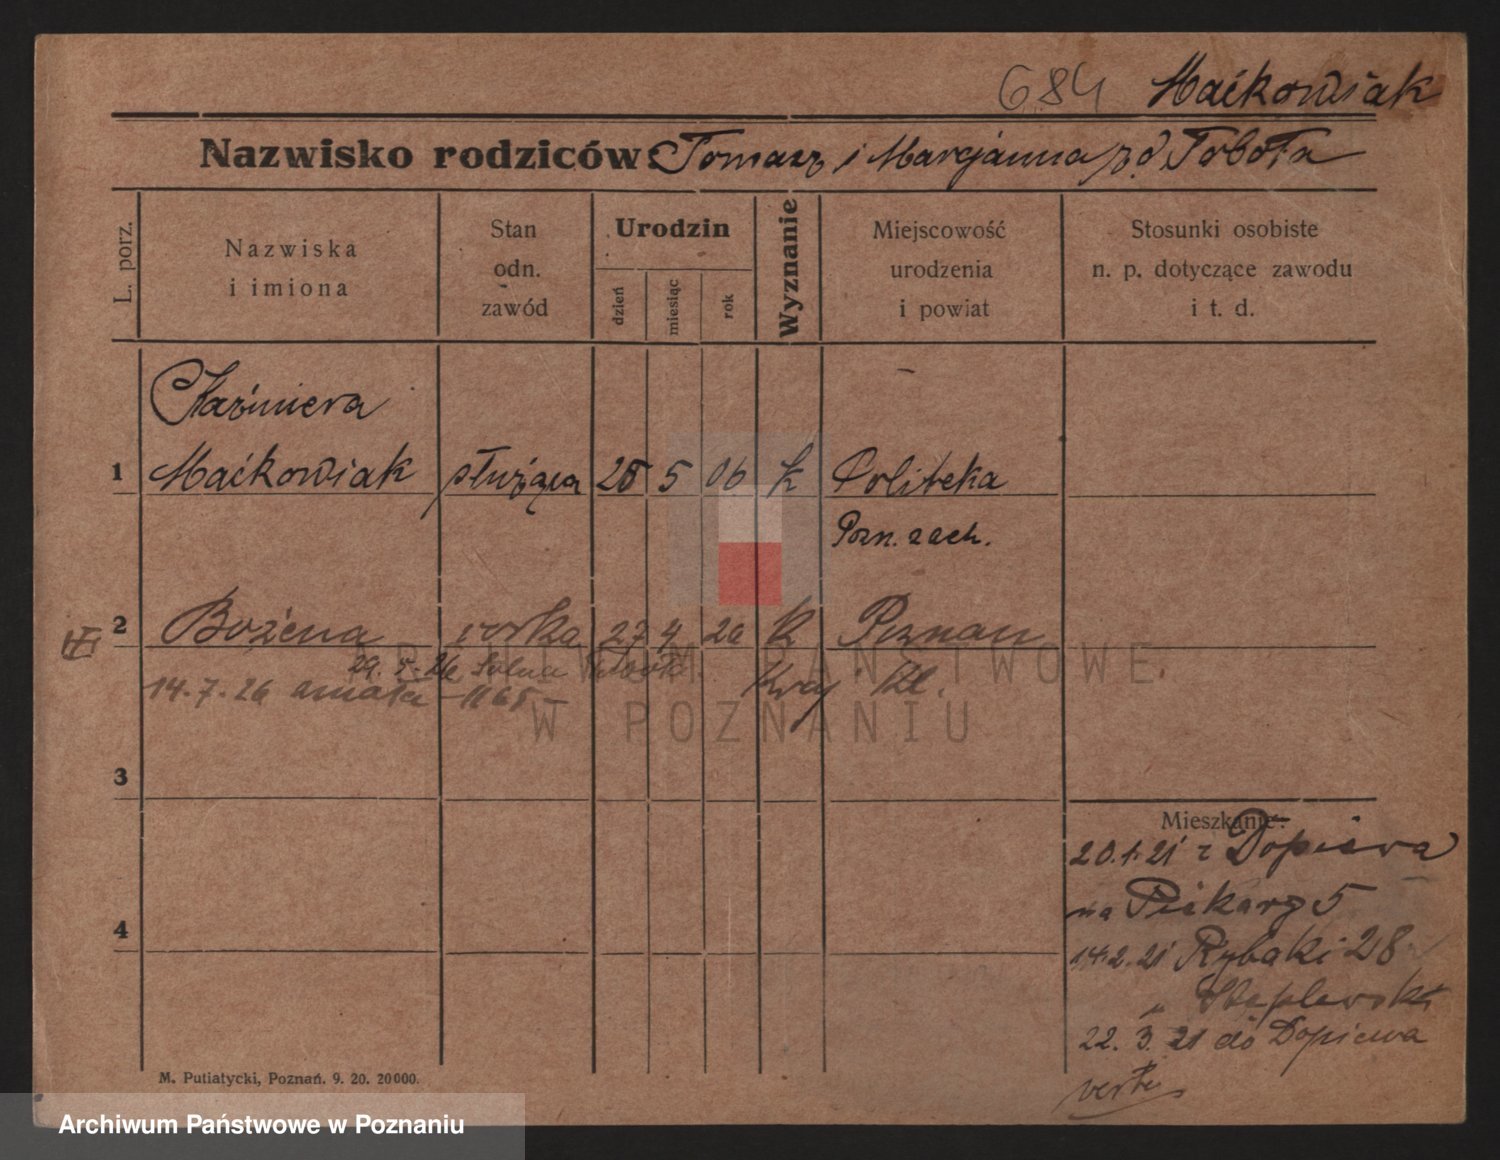 684 Maćkowiak
Nazwisko rodziców: Tomasz i Marcjanna z d. Toboła
L. porz.
Nazwiska
i imiona
Stan
odn.
zawód
Urodzin
dzień
miesiąc
rok
Wyznanie
Miejscowość
urodzenia
i powiat
Stosunki osobiste
n. p. dotyczące zawodu
i t. d.
Kaźmiera
1 Maćkowiak służąca 25 5 06 k
Pozn. zach.
2 Bożena córka 27 4 26 k Poznań
14.7.26 Kraj. Kl.
3
Mieszkanie:
20.1.21 z Dopiewa
na Piekary 5
4
14.2.21 Rybaki 28
22.3.21 do Dopiewa
verte
M. Putiatycki, Poznań. 9. 20. 20000.
ARCHIWUM PAŃSTWOWE
W POZNANIU
Archiwum Państwowe w Poznaniu